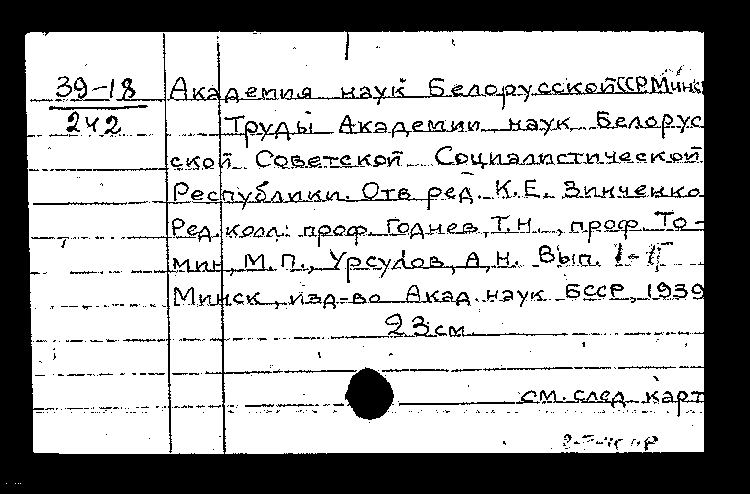 39-18
242
Академия наук Белорусской ССР. Минск
Труды Академии наук Белорус
ской Советской Социалистической
Республики. Отв. ред. К.Е. Зинченко
Ред. колл: проф. Годнев, Т.Н., проф. То-
мин, М.П., Урсулов, А.Н. Вып. I-II
Минск, изд-во Акад. наук БССР, 1939
23 см.
см. след. карт